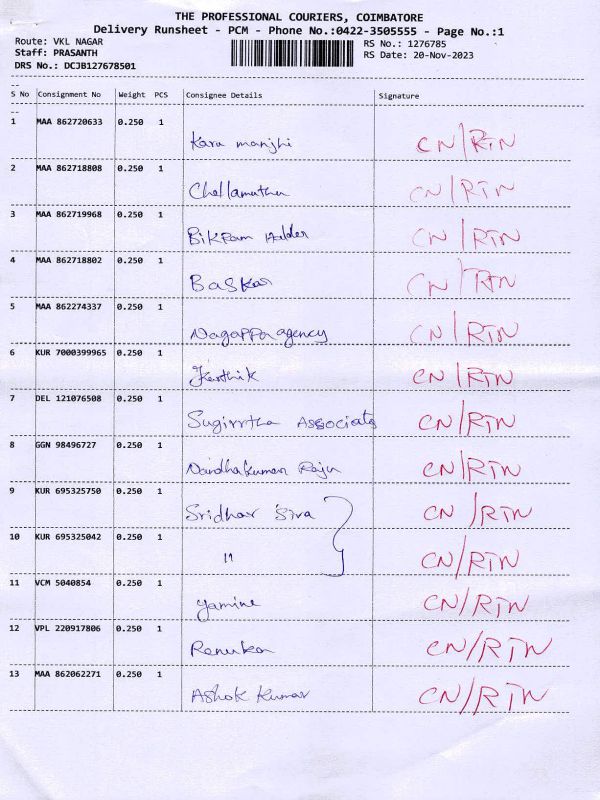 THE PROFESSIONAL COURIERS, COIMBATORE
Delivery Runsheet - PCM - Phone No.:0422-3505555 - Page No.:1
Route: VKL NAGAR RS No.: 1276785
Staff: PRASANTH RS Date: 20-Nov-2023
DRS No.: DCJB127678501
S No Consignment No Weight PCS Consignee Details Signature
1 MAA 862720633 0.250 1 Karu manjhi CN/RTN
2 MAA 862718808 0.250 1 Chellamuthu CN/RTN
3 MAA 862719968 0.250 1 Bikram Halder CN/RTN
4 MAA 862718802 0.250 1 Baskar CN/RTN
5 MAA 862274337 0.250 1 Nagappa agency CN/RTN
6 KUR 7000399965 0.250 1 Karthik CN/RTN
7 DEL 121076508 0.250 1 Sugirrtha Associats CN/RTN
8 GGN 98496727 0.250 1 Nandhakumar Raju CN/RTN
9 KUR 695325750 0.250 1 Sridhar Siva CN/RTN
10 KUR 695325042 0.250 1 " CN/RTN
11 VCM 5040854 0.250 1 yamine CN/RTN
12 VPL 220917806 0.250 1 Renuka CN/RTN
13 MAA 862062271 0.250 1 Ashok Kumar CN/RTN